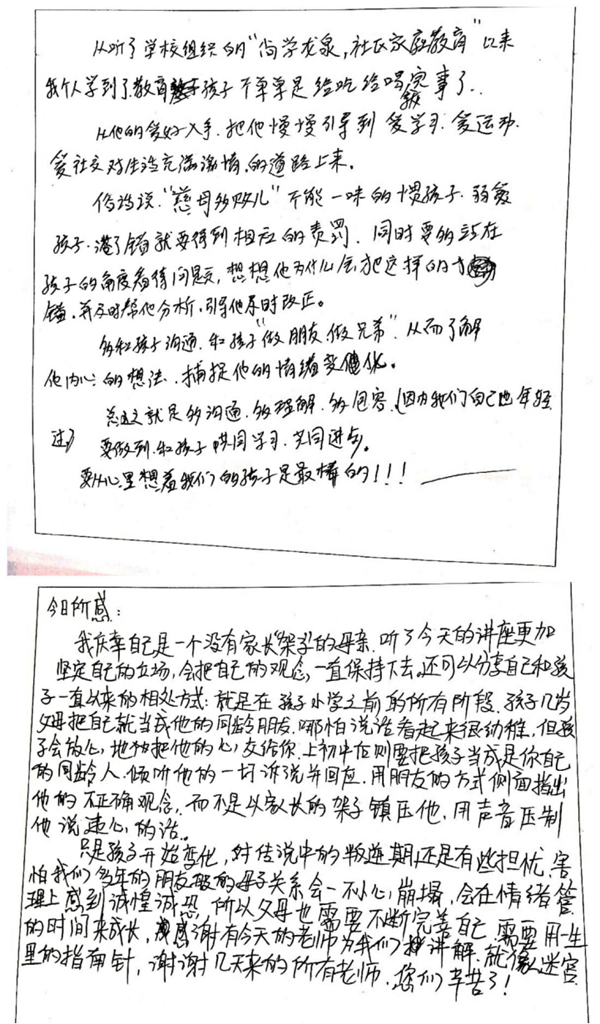 从听了学校组织的“尚学龙泉,社区家庭教育”以来
我个人学到了教育孩子不单单是给吃给喝完事了..
从他的爱好入手.把他慢慢引导到爱学习.爱运动.
爱社交对生活充满激情.的道路上来.
俗话说.“慈母多败儿”不能一味的惯孩子.弱爱
孩子.错就要得到相应的责罚.同时要多站在
孩子的角度看待问题,想想他为什么会犯这样的
错.并及时帮他分析.引导他及时改正。
多和孩子沟通.和孩子“做朋友.做兄弟”.从而了解
他内心的想法.捕捉他的情绪变化.
总之就是多沟通.多理解.多包容.(因为我们自己也年轻
过)要做到.和孩子共同学习.共同进步。
要从心里想着我们的孩子是最棒的!!!
今日所感:
我庆幸自己是一个没有家长“架子”的母亲.听了今天的讲座更加
坚定自己的立场,会把自己的观念,一直保持下去.还可以分享自己和孩
子一直以来的相处方式:就是在孩子小学之前的所有阶段.孩子几岁
父母把自己就当成他的同龄朋友.哪怕说话看起来很幼稚.但孩
子会放心,地把他的心交给你.上初中后则要把孩子当成是你自己
的同龄人.倾听他的一切诉说并回应.用朋友的方式侧面指出
他的不正确观念.而不是以家长的架子镇压他,用声音压制
他说违心的话。
只是孩子开始变化,对传说中的叛逆期.还是有些担忧.害
怕我们多年的朋友般的母子关系会一不小心崩塌,会在情绪管
理上感到诚惶诚恐.所以父母也需要不断完善自己.需要用一生
的时间来成长,感谢有今天的老师为我们讲解.就像迷宫
里的指南针,谢谢几天来的所有老师.您们辛苦了!